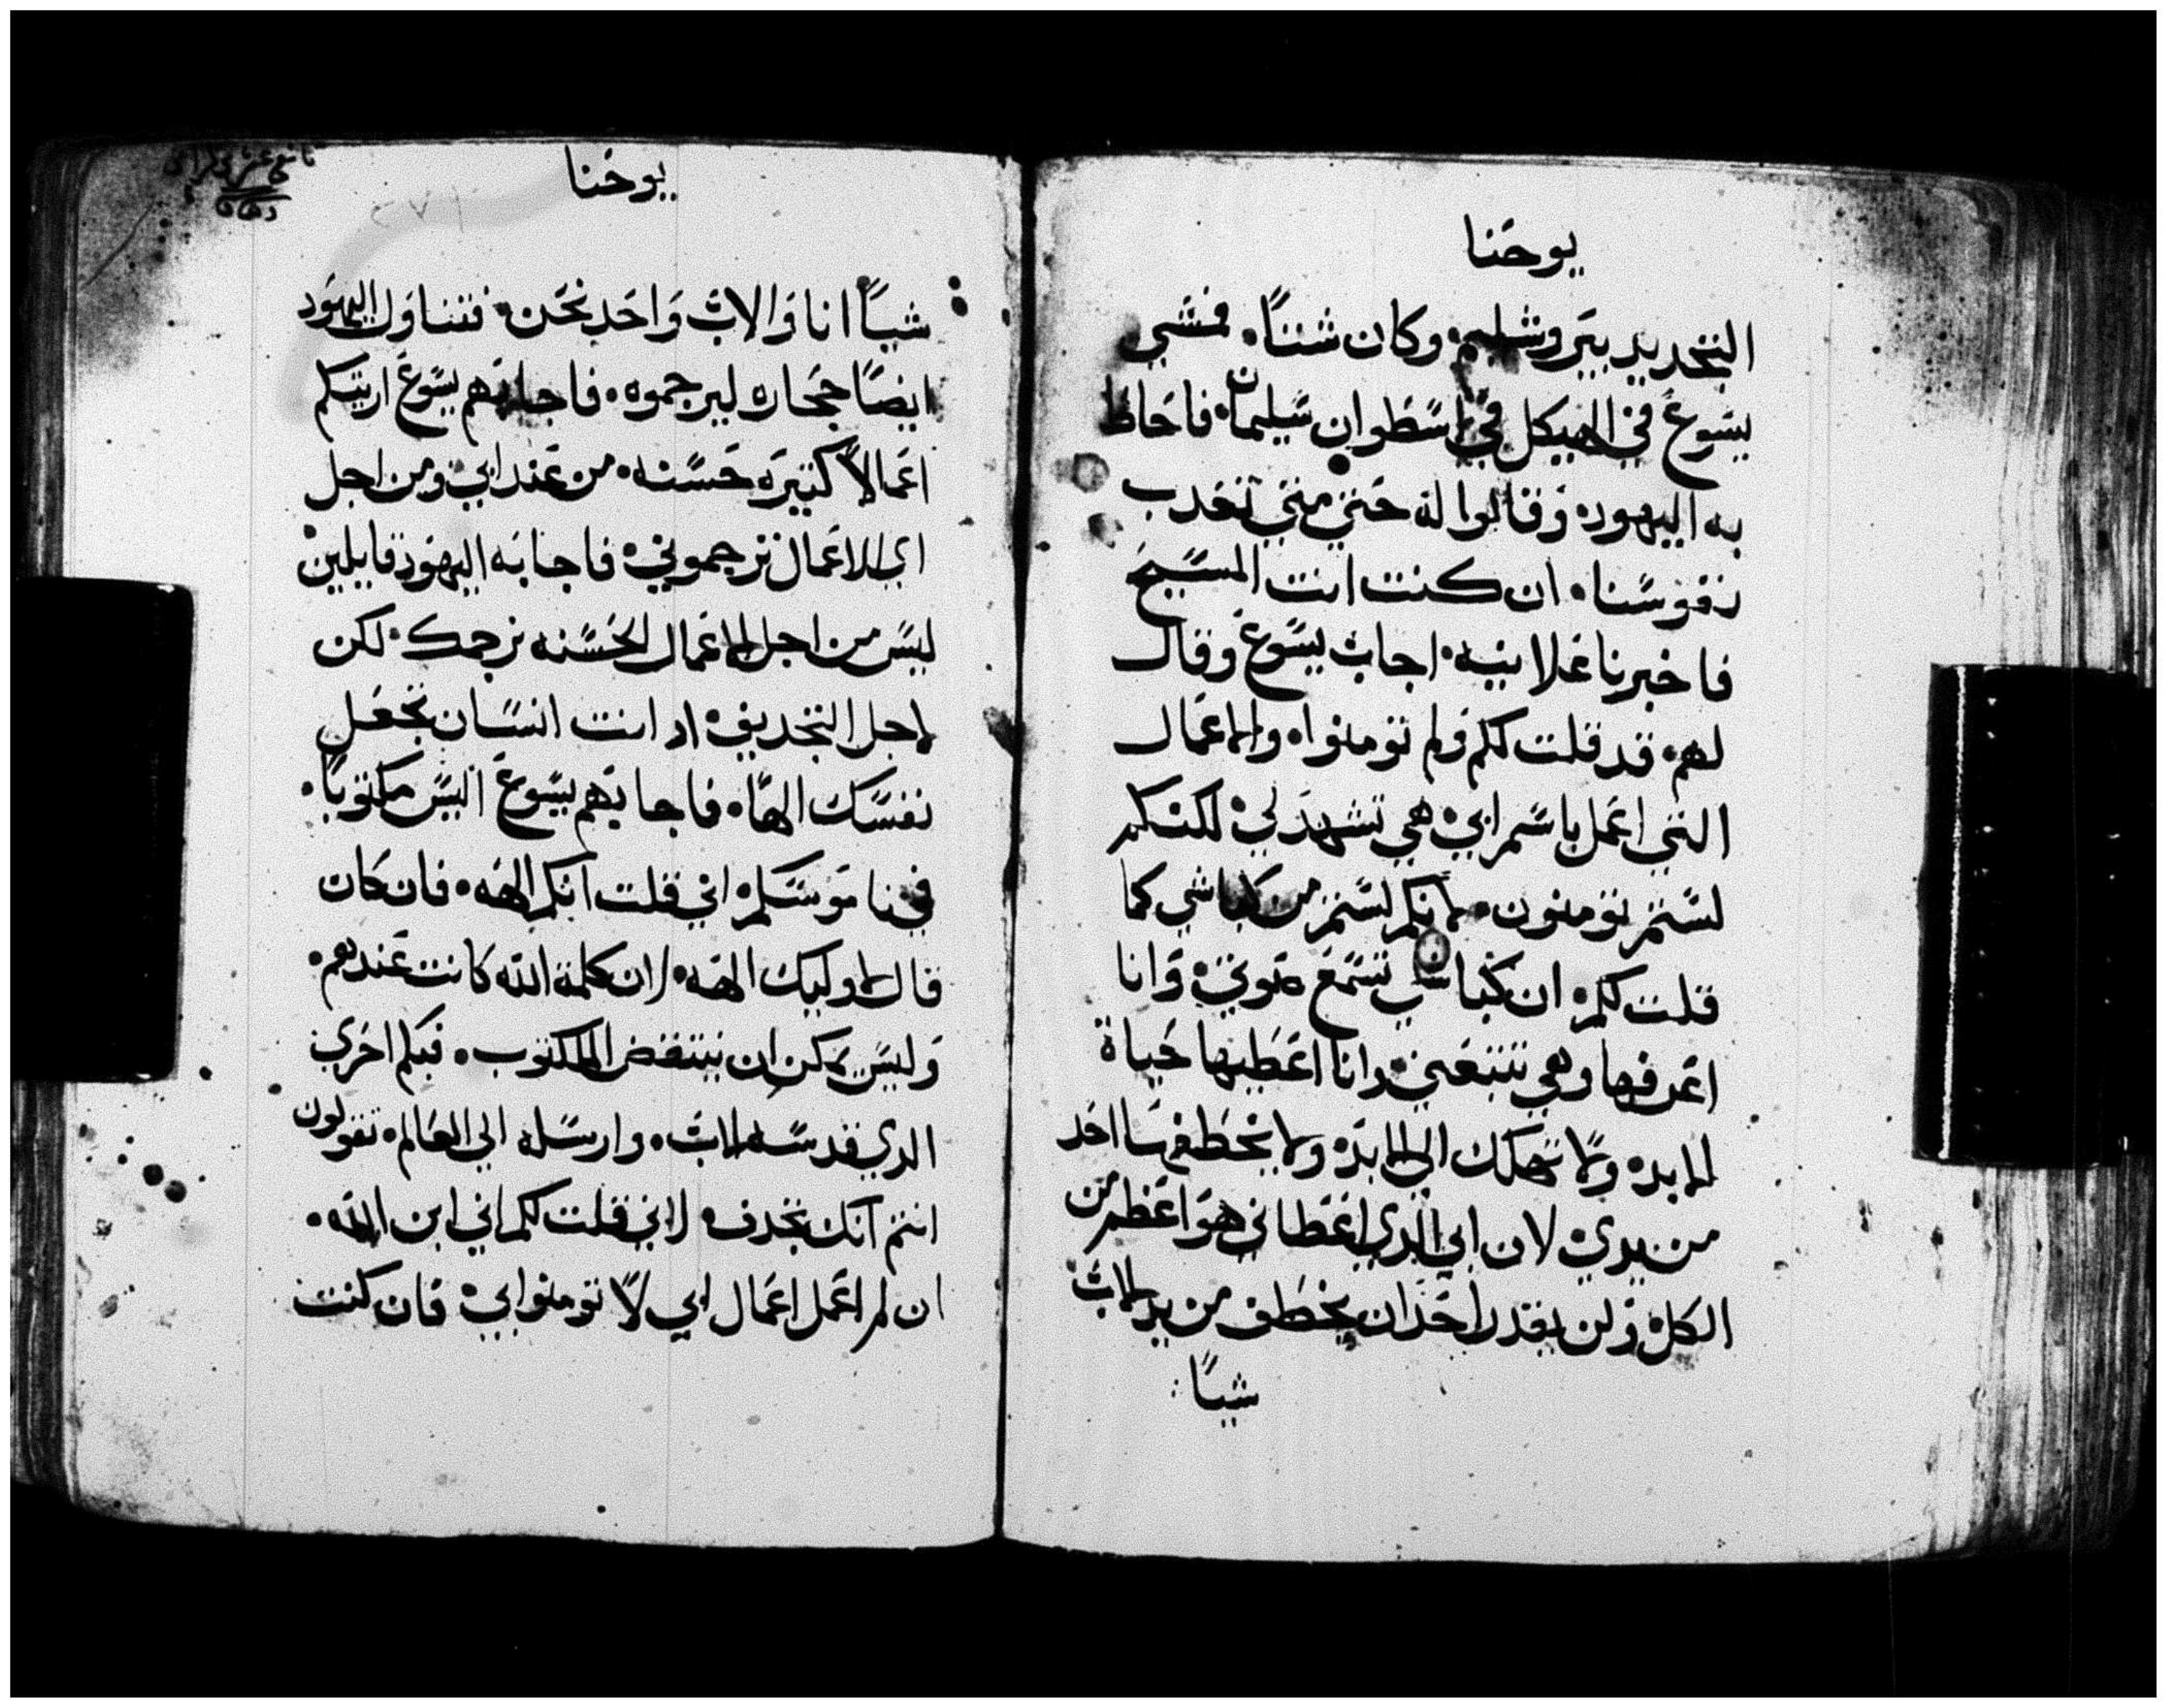 يوحنا
التجديد بيروشليم. وكان شتاً. فمشي
يسوع في الهيكل في اسطوان سليمان. فاحاط
به اليهود. وقالوا له حتي متي تعدب
نفوسنا. ان كنت انت المسيح
فاخبرنا علانيه. اجاب يسوع وقال
لهم. قد قلت لكم ولم تومنوا. والاعمال
التي اعمل باسم ابي. هي تشهد لي. لكنكم
لستم تومنون. لانكم لستم من كباشي كما
قلت لكم. ان كباشي تسمع صوتي. وانا
اعرفها وهي تتبعني. وانا اعطيها حياة
الابد. ولا تهلك الي الابد. ولا يخطفها احد
من يدي. لان ابي الدي اعطاني هو اعظم من
الكل. ولن يقدر احد ان يخطف من يد الاب
شياً
يوحنا
٢٧١
شياً انا والاب واحد نحن. فتناول اليهود
ايضاً حجاره ليرجموه. فاجابهم يسوع اريتكم
اعمالاً كتيره حسنه. من عند ابي. ومن اجل
اي الاعمال ترجموني. فاجابه اليهود قايلين
ليس من اجل الاعمال الحسنه نرجمك. لكن
لاجل التجديف. اد انت انسان تجعل
نفسك الهاً. فاجابهم يسوع اليس مكتوباً.
في ناموسكم. اني قلت انكم الهه. فان كان
قال لاوليك الهه. لان كلمة الله كانت عندهم.
وليس يمكن ان ينتقض المكتوب. فبكم احري
الدي قدسه الاب. وارسله الي العالم. تقولون
انتم انك تجدف. لاني قلت لكم اني ابن الله.
ان لم اعمل اعمال ابي لا تومنوا بي. فان كنت